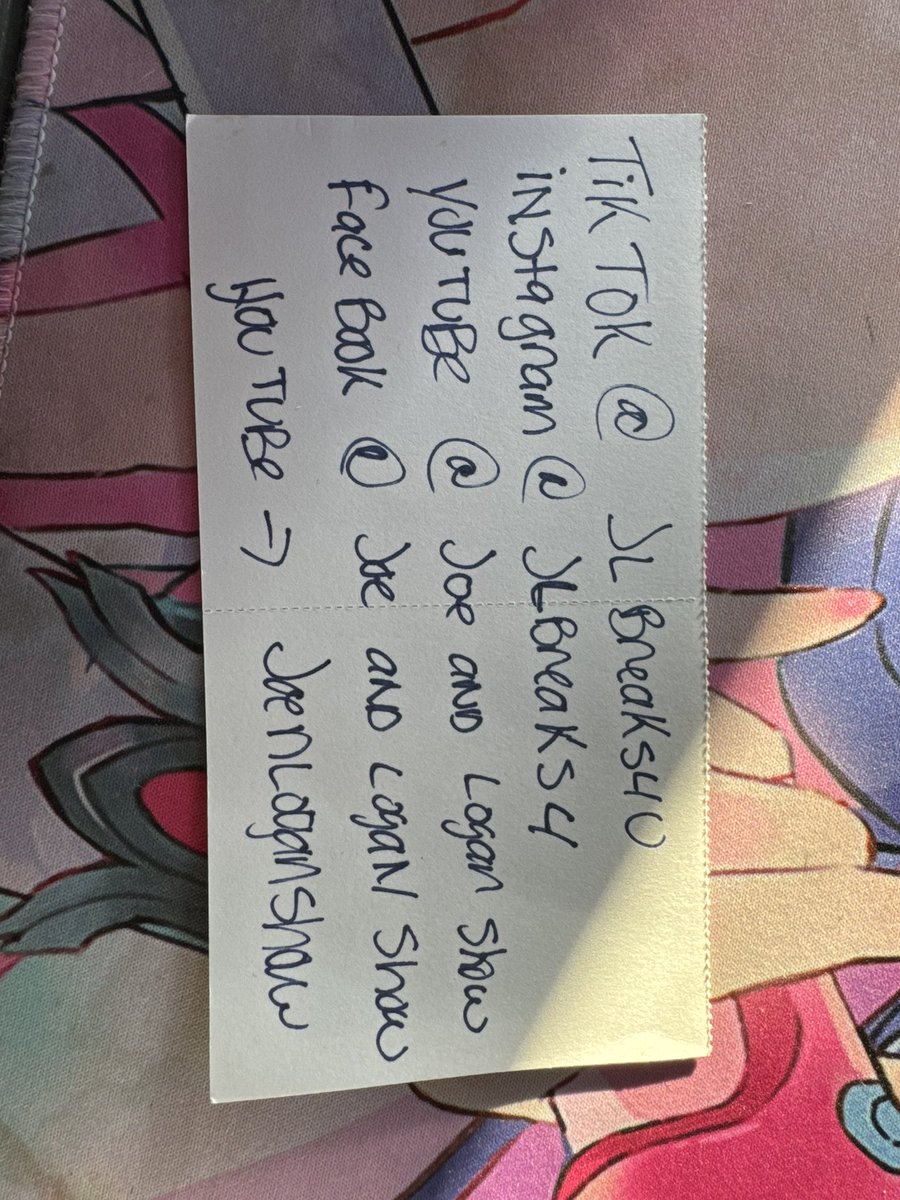 TikTok @ JL Breaks4U
iNStagram @ JLBreaks4
YouTube @ Joe AND Logan Show
FaceBook @ Joe AND LogaN Show
YouTube => JoenLoganShow